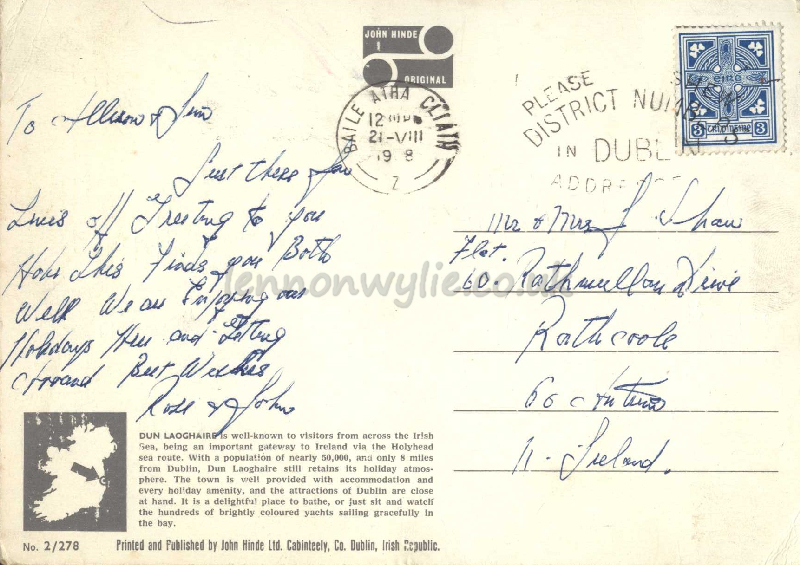 JOHN HINDE
ORIGINAL
BAILE ATHA CLIATH
12
21-VIII
19 8
Z
PLEASE
DISTRICT NUM
IN DUBL
ADDRESS
éire
3 3
To Allison & Jim
Just these few
Lines off Greeting to you
Hope This Finds you Both
Well We are Enjoying our
Holidays Here and Getting
around Best Wishes
Rose & John
Mr & Mrs J Shaw
Flat.
60. Rathmullan Drive
Rathcoole
Co Antrim
N. Ireland.
lennonwylie.co.uk
DUN LAOGHAIRE is well-known to visitors from across the Irish
Sea, being an important gateway to Ireland via the Holyhead
sea route. With a population of nearly 50,000, and only 8 miles
from Dublin, Dun Laoghaire still retains its holiday atmos-
phere. The town is well provided with accommodation and
every holiday amenity, and the attractions of Dublin are close
at hand. It is a delightful place to bathe, or just sit and watch
the hundreds of brightly coloured yachts sailing gracefully in
the bay.
No. 2/278 Printed and Published by John Hinde Ltd. Cabinteely, Co. Dublin, Irish Republic.